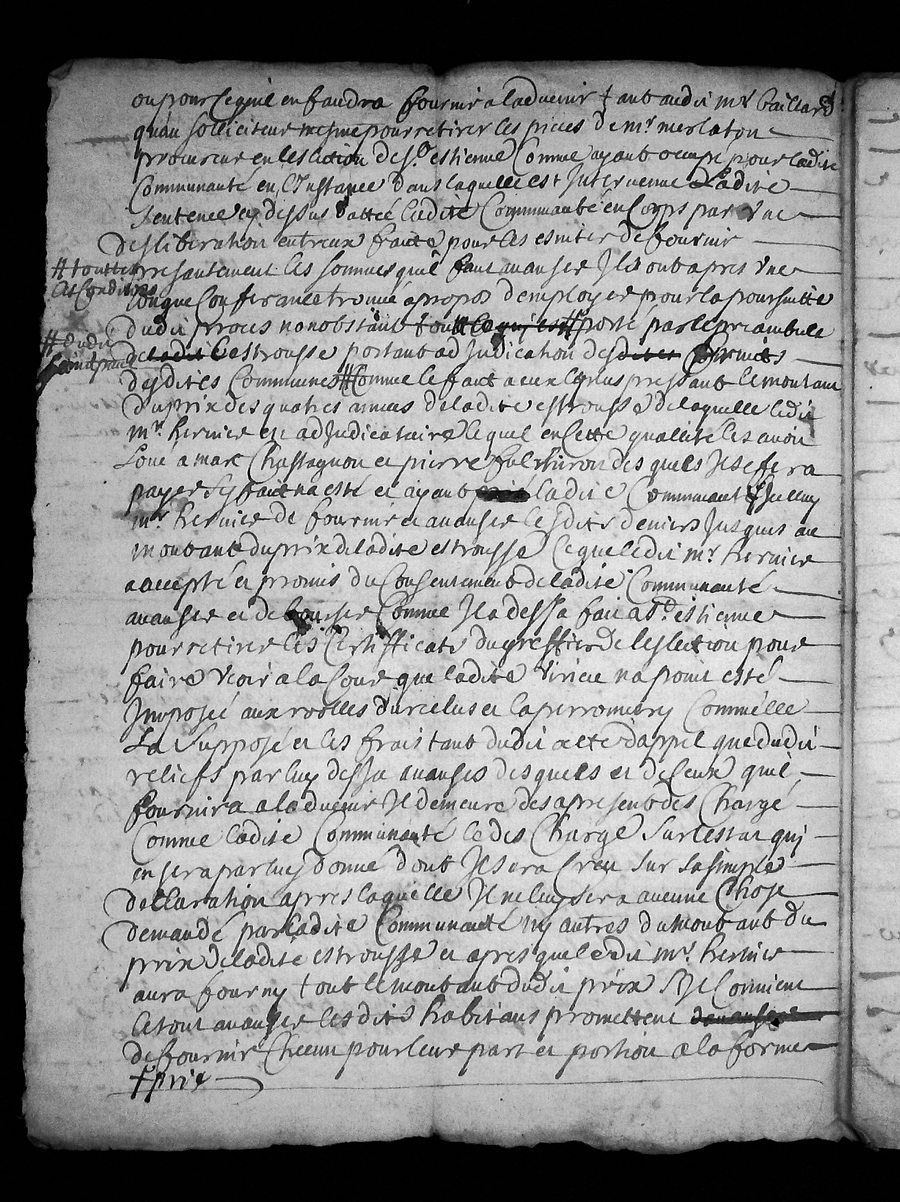 ou pour ce quil en faudra fournir a ladvenir tant audit mr Gaillard
quau solliciteur mesme pour retirer les pieces de mr merlaton
procureur en leslection de St estienne Comme ayant occupé pour ladite
Communauté en linstance dans laquelle est Intervenue ladite
sentence cy dessus dattée ladite Communauté en Corps par une
desliberation entreux faite pour les esviter de fournir
presantement les sommes quil faut avanser Ils ont apres une
longue Conferance trouvé apropos demployer pour la poursuitte
dudit proces nonobstant tout ce qui est porté par le preambule
de ladite lestrousse portant adJudication des dites
desdites Communes Comme le fait a eux le plus pressant le montant
du prix des quatres annees de ladite estrousse de laquelle ledit
mr hernier est adJudicataire lequel en cette qualité les avoit
Loué a marc Chastagnon et pierre desquels Il se fera
payer sy fait na esté et ayant ladite Communauté
mr hernier de fournir et avanser lesdits deniers Jusques au
montant du prix de ladite estrousse Ce que ledit mr hernier
a accepté et promis du Consentement de ladite Communauté
avanser et debourser Comme Il a dessa fait a St estienne
pour retirer les Certifficats du greffier de leslection pour
faire voir a la Cour que ladite na point esté
Imposée aux roolles du et Comme elle
La Supposé et les frais tant dudit acte dappel que dudit
reliefs par luy dessa avansés desquels et de Ceux quil
fournira a ladvenir Il demeure des a present des Chargé
Comme ladite Communauté le des Charge Sur lestat qui
en sera par luy donné dont Il sera Creu sur sa simple
declaration apres laquelle Il ne luy sera aucune Chose
demandé par ladite Communauté ny autres du montant du
prix de ladite estrousse et apres que ledit mr hernier
aura fourny tout le montant dudit prix Sil Convient
le tout avanser lesdits habitans promettent
de fournir Chacun pour leur part et portion a la forme
# toutte
les Conditions
# dudit